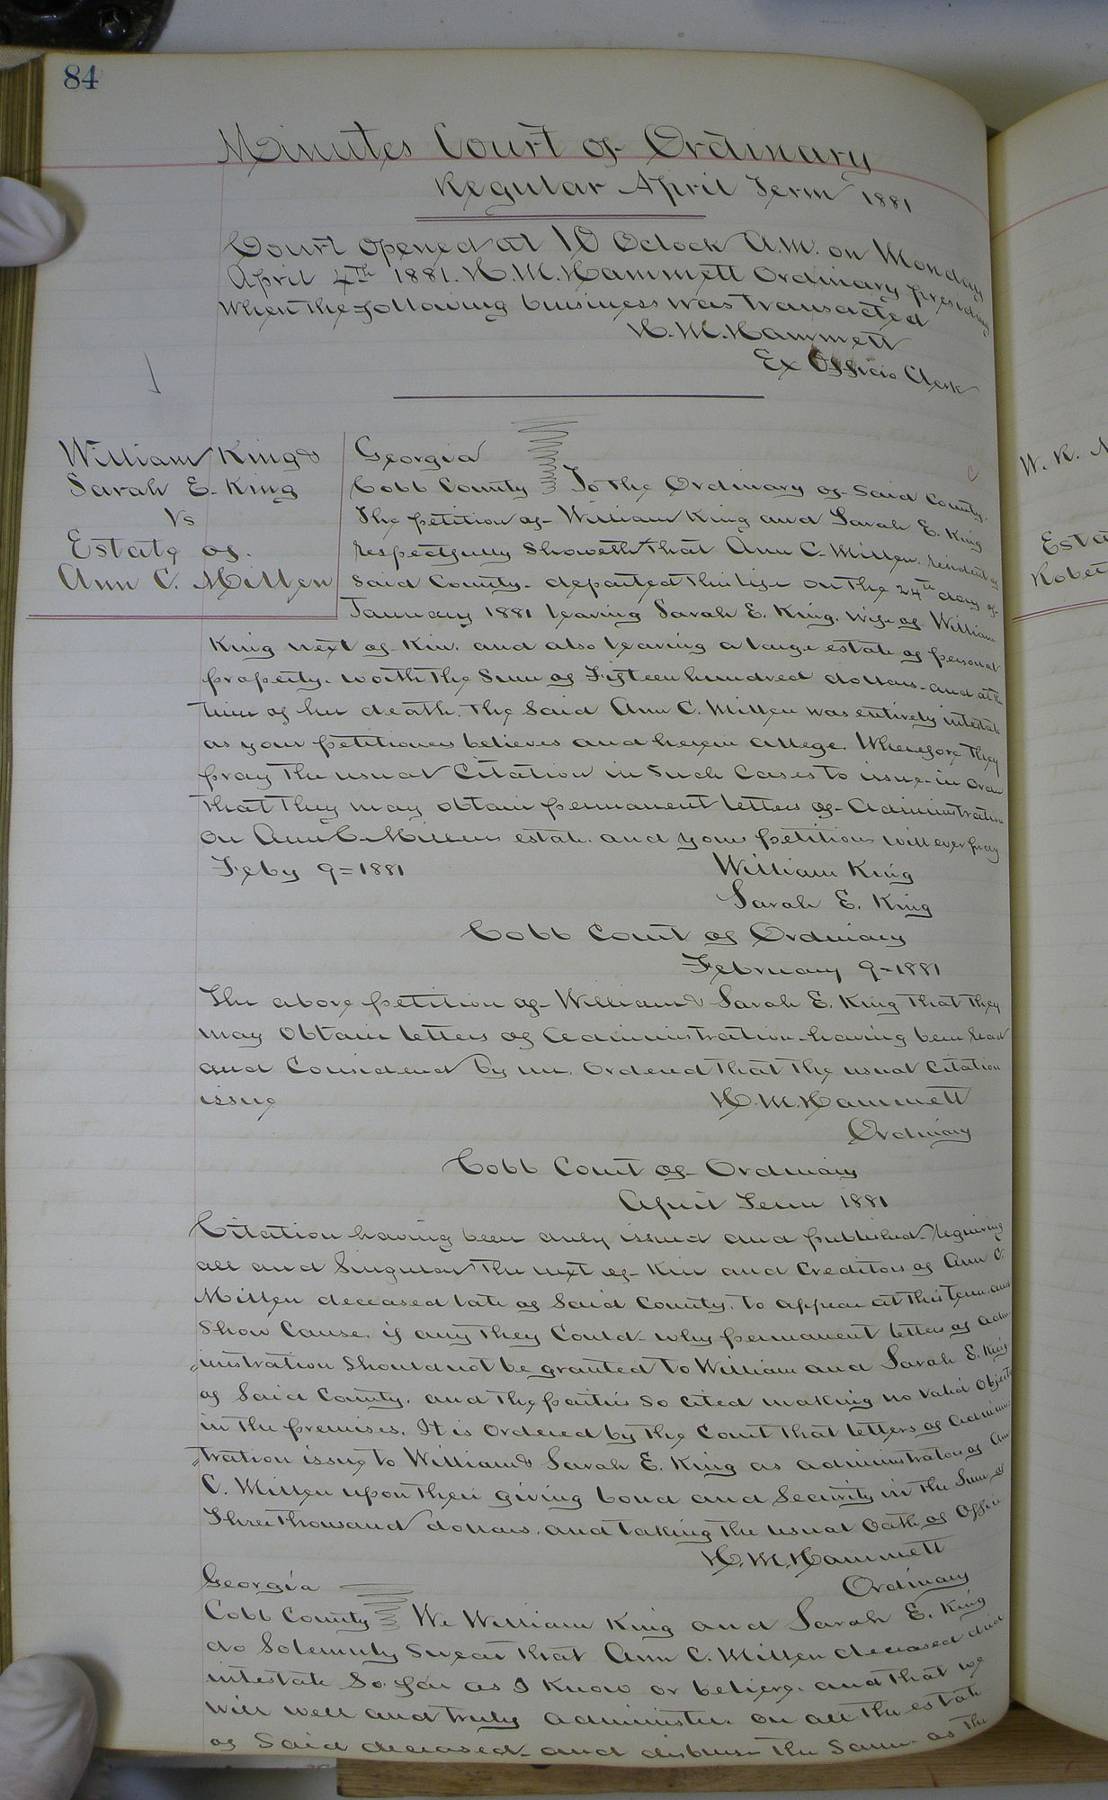 84
Minutes Court of Ordinary
Regular April Term 1881
Court opened at 10 Oclock A.M. on Monday
April 4th 1881. H. M. Hammett Ordinary presiding
When the following business was transacted
H. M. Hammett
Ex Officio Clerk
William King &
Sarah E. King
Vs
Estate of
Ann C. Millen
Georgia
Cobb County To the Ordinary of said County.
The petition of William King and Sarah E. King
respectfully showeth that Ann C. Millen, resident of
said County departed this life on the 24th day of
January 1881 leaving Sarah E. King, wife of William
King next of Kin, and also leaving a large estate of personal
property, worth the Sum of Fifteen hundred dollars and at the
time of her death, the said Ann C. Millen was entirely intestate
as your petitioners believes and herein allege. Wherefore they
pray the usual Citation in such Cases to issue in order
that they may obtain permanent letters of Administration
on Ann C. Millens estate. and your petitions will ever pray
Feby 9=1881 William King
Sarah E. King
Cobb Court of Ordinary
February 9-1881
The above petition of William & Sarah E. King that they
may obtain letters of administration having been read
and Considered by me, Ordered that the usual Citation
issue H. M. Hammett
Ordinary
Cobb Court of Ordinary
April Term 1881
Citation having been duly issued and published requiring
all and Singular the next of Kin and Creditors of Ann C.
Millen deceased late of Said County, to appear at this term and
Show Cause, if any they Could, why permanent letters of adm-
inistration Should not be granted to William and Sarah E. King
of Said County, and the parties so cited making no valid object
in the premises, It is Ordered by the Court that letters of adminis-
tration issue to William & Sarah E. King as administrators of Ann
C. Millen upon their giving bond and Security in the Sum of
Three thousand dollars, and taking the usual Oath of Office
H. M. Hammett
Ordinary
Georgia
Cobb County We William King and Sarah E. King
do Solemnly Swear that Ann C. Millen deceased died
intestate So far as I Know or believe. and that we
will well and truly administer on all the estate
of Said deceased and disburse the Same as the
W. R.
Esta
Rober